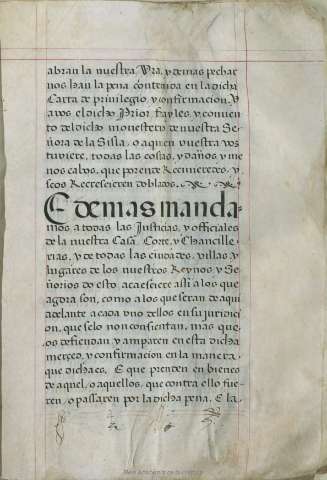 abran la nuestra Yra, y demas pechar
nos han la pena contenida en la dicha
Carta de privilegio, y confirmacion. Y
a vos el dicho Prior frayles, y conven
to del dicho monesterio de nuestra Se
ñora de la Sisla, o a quien vuestra voz
tuviere, todas las costas, y daños, y me
nos cabos, que por ende Recivieredes, y
se os Recrescieren doblados.
E demas manda-
mos a todas las Justicias, y officiales
de la nuestra Casa, Corte, y Chancille
rias, y de todas las ciudades, villas, y
lugares de los nuestros Reynos, y Se
ñorios do esto, acaesciere assi a los que
agora son, como a los que seran de aqui
adelante a cada uno dellos en su juridici
on, que selo non consientan, mas que
os defiendan y amparen en esta dicha
merced, y confirmacion en la manera,
que dicha es. E que prenden en bienes
de aquel, o aquellos, que contra ello fue
ren, o passaren por la dicha pena. E la
Real Academia de la Historia